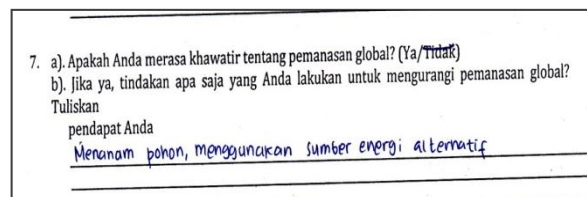 7. a). Apakah Anda merasa khawatir tentang pemanasan global? (Ya/Tidak)
b). Jika ya, tindakan apa saja yang Anda lakukan untuk mengurangi pemanasan global?
Tuliskan
pendapat Anda
Menanam pohon, menggunakan sumber energi alternatif